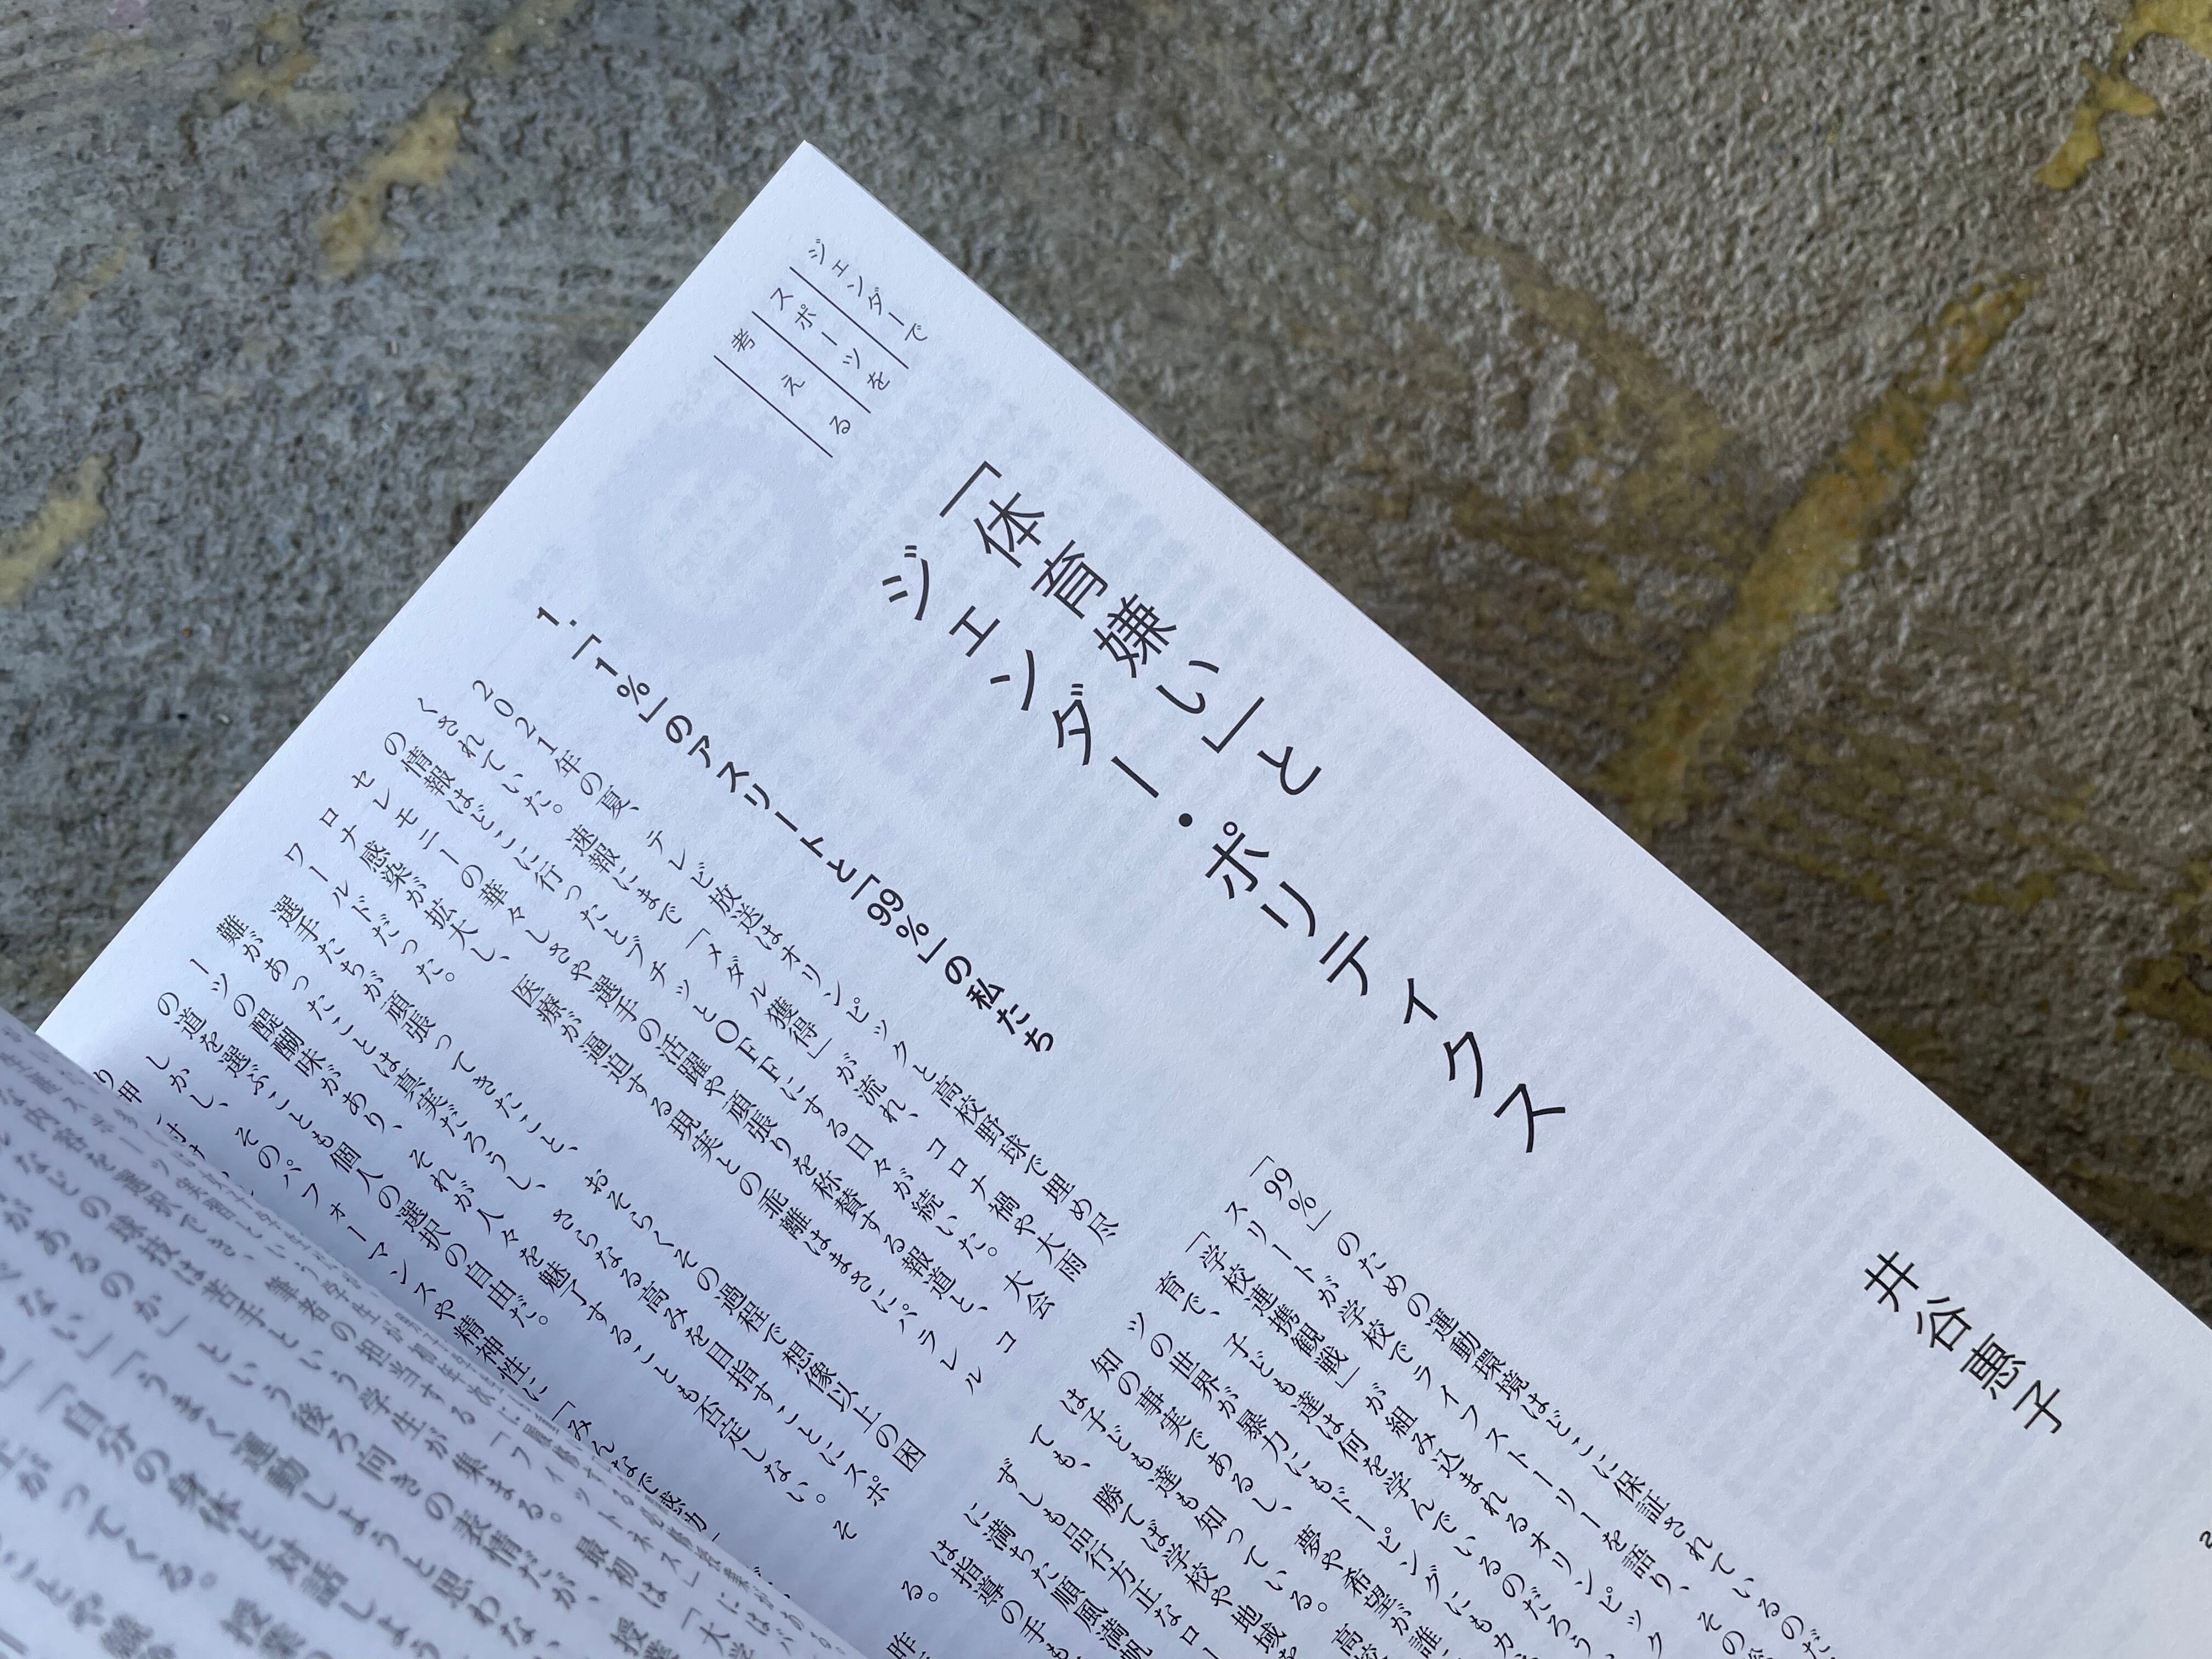 ジェンダーで
スポーツを
考える
「体育嫌い」と
ジェンダー・ポリティクス
井谷惠子
1.「1%」のアスリートと「99%」の私たち
2021年の夏、テレビ放送はオリンピックと高校野球で埋め尽
くされていた。速報にまで「メダル獲得」が流れ、コロナ禍や大雨
の情報はどこに行ったとブチッとOFFにする日々が続いた。大会
セレモニーの華々しさや選手の活躍や頑張りを称賛する報道と、コ
ロナ感染が拡大し、医療が逼迫する現実との乖離はまさにパラレル
ワールドだった。
選手たちが頑張ってきたこと、おそらくその過程で想像以上の困
難があったことは真実だろうし、さらなる高みを目指すことにスポ
ーツの醍醐味があり、それが人々を魅了することも否定しない。そ
の道を選ぶことも個人の選択の自由だ。
しかし、そのパフォーマンスや精神性に「みんなで感動」
「99%」のための運動環境はどこに保証されているのだ
スリートが学校でライフストーリーを語り、その
「学校連携観戦」が組み込まれるオリンピック
育で、子ども達は何を学んでいるのだろう、
ツの世界が暴力にもドーピングにもカ
知の事実であるし、夢や希望が誰
は子ども達も知っている。
ても、勝てば学校や地域を
ずしも品行方正なロー
に満ちた順風満帆
は指導の手も
る。
昨
筆者の担当する「フィットネス」にはバ
などの球技は苦手という学生が集まる。最初は「大学
があるのか」という後ろ向きの表情だが、授業
「うまく運動しようと思わな
「自分の身体と対話しよう
がってくる。授業